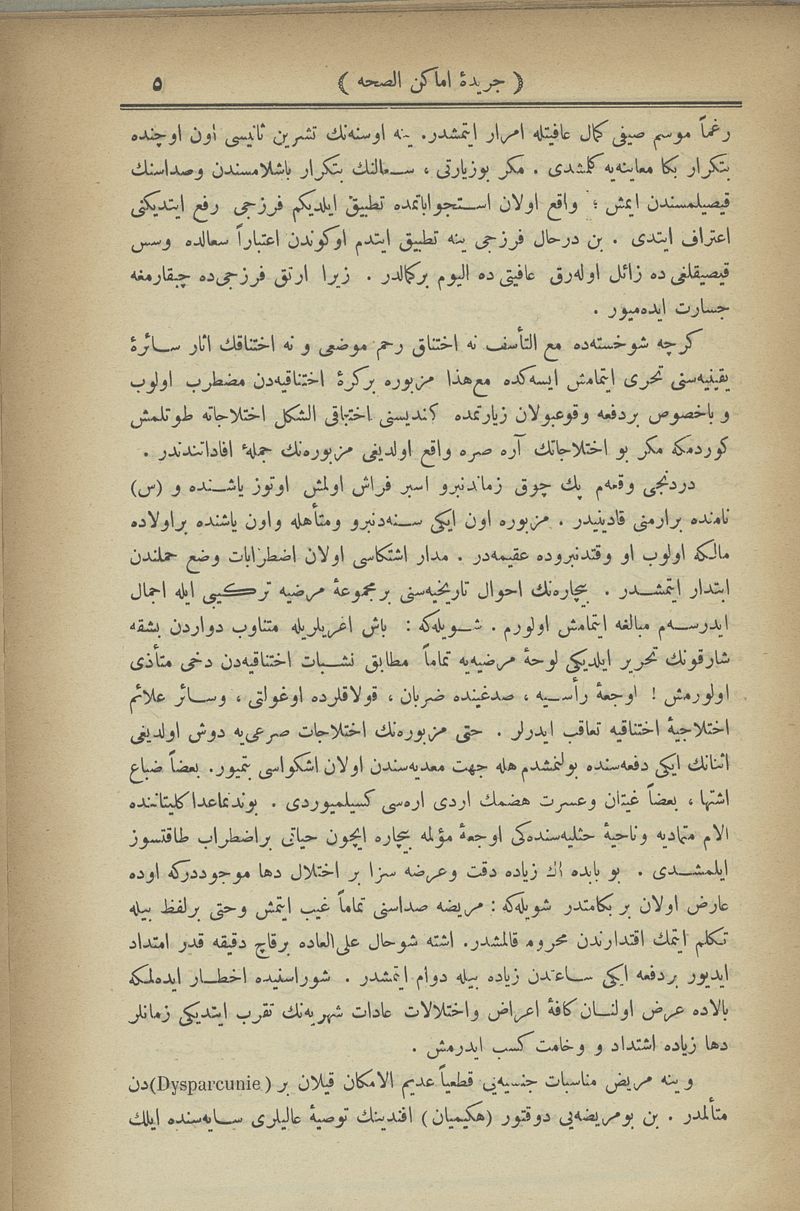 ﴿ جريدهٔ اماكن الصحه ﴾ ٥
رغماً موسم صيفى كمال عافيتله امرار ايتمشدر. ينه اوسنه‌نك تشرين ثانيسى اون اوچنده
بتكرار بكا معاينه‌يه كلمشدى . مكر بوزيارتى ، سعالنك بتكرار باشلامسندن وصداسنك
قيصيلمسندن ايمش ؛ واقع اولان استجواباتمده تطبيق ايلديكم فرزجى رفع ايتديكنى
اعتراف ايتدى . بن درحال فرزجى ينه تطبيق ايتدم اوكوندن اعتباراً سعالده وسس
قيصيقلغى ده زائل اوله‌رق عافيتى ده اليوم بركمالدر . زيرا ارتق فرزجى‌ده چيقارمغه
جسارت ايده‌ميور .
كرچه شوخسته‌ده مع التأسف نه اختناق رحم موضعى و نه اختناقك اثار سائرهٔ
يقينيه‌سنى تحرى ايتمامش ايسه‌كده مع‌هذا مزبوره بركرهٔ اختناقيه‌دن مضطرب اولوب
و باخصوص بردفعه وقوعبولان زيارتمده كنديسنى اختناقى الشكل اختلاجاته طوتلمش
كوردمكه مكر بو اختلاجاتك آره صره واقع اولديغى مزبوره‌نك جملهٔ افاداتندندر .
دردنجى وقعه‌م پك چوق زماندنبرو اسير فراش اولمش اوتوز ياشنده و (س)
نامنده برارمنى قادينيدر . مزبوره اون ايكى سنه‌دنبرو ومتأهله واون ياشنده براولاده
مالكه اولوب او وقتدنبروده عقيمه‌در . مدار اشتكاسى اولان اضطرابات وضع حملندن
ابتدار ايتمشدر . بيچاره‌نك احوال تاريخيه‌سنى برمجموعهٔ مرضيه تركيبى ايله اجمال
ايدرسه‌م مبالغه ايتمامش اولورم . شويله‌كه : باش اغريلريله متناوب دواردن بشقه
شارقونك تحرير ايلديكى لوحهٔ مرضيه‌يه تماماً مطابق نشبات اختناقيه‌دن دخى متأذى
اولورمش ! اوجعهٔ رأسيه ، صدغينده ضربان ، قولاقلرده اوغولتى ، وسائر علائم
اختلاجيهٔ اختناقيه تعاقب ايدرلر . حتى مزبوره‌نك اختلاجات صرعى‌يه دوش اولديغى
اثنانك ايكى دفعه‌سنده بولنمشدم هله جهت معديه‌سندن اولان اشكواسى بتميور. بعضاً ضياع
اشتها ، بعضاً غيثان وعسرت هضمك اردى اره‌سى كسيلميوردى . بوندنماعدا كليتاننده
آلام متماديه وناحيهٔ حثليه‌سنده‌كى اوجعهٔ مؤلمه بيچاره ايچون حياتى براضطراب طاقتسوز
ايلمشدى . بو بابده اك زياده دقت وعرضه سزا بر اختلال دها موجوددركه اوده
عارض اولان بر بكامتدر شويله‌كه : مريضه صداسنى تماماً غيب ايتمش وحتى برلفظ بيله
تكلم ايتمك اقتدارندن محرومه قالمشدر. اشته شوحال على‌العاده برقاچ دقيقه قدر امتداد
ايديور بردفعه ايكى ساعتدن زياده بيله دوام ايتمشدر . شوراسنيده اخطار ايده‌لمكه
بالاده عرض اولنان كافهٔ اعراض واختلالات عادات شهريه‌نك تقرب ايتديكى زمانلر
دها زياده اشتداد و وخامت كسب ايدرمش .
وينه مريض مناسبات جنسيه‌يى قطعياً عديم الامكان قيلان بر (Dysparcunie)دن
متألمدر . بن بومريضه‌يى دوقتور (هكيميان) افندينك توصيهٔ عاليلرى سايه‌سنده ايلك